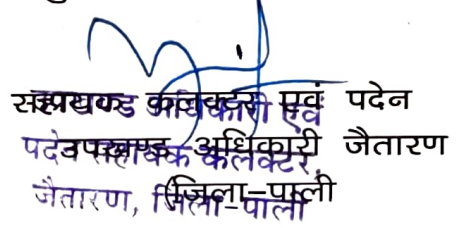 सहायक कलक्टर एवं पदेन
उपखण्ड अधिकारी जैतारण
जिला-पाली
उपखण्ड अधिकारी एवं
पदेन सहायक कलेक्टर,
जैतारण, जिला-पाली